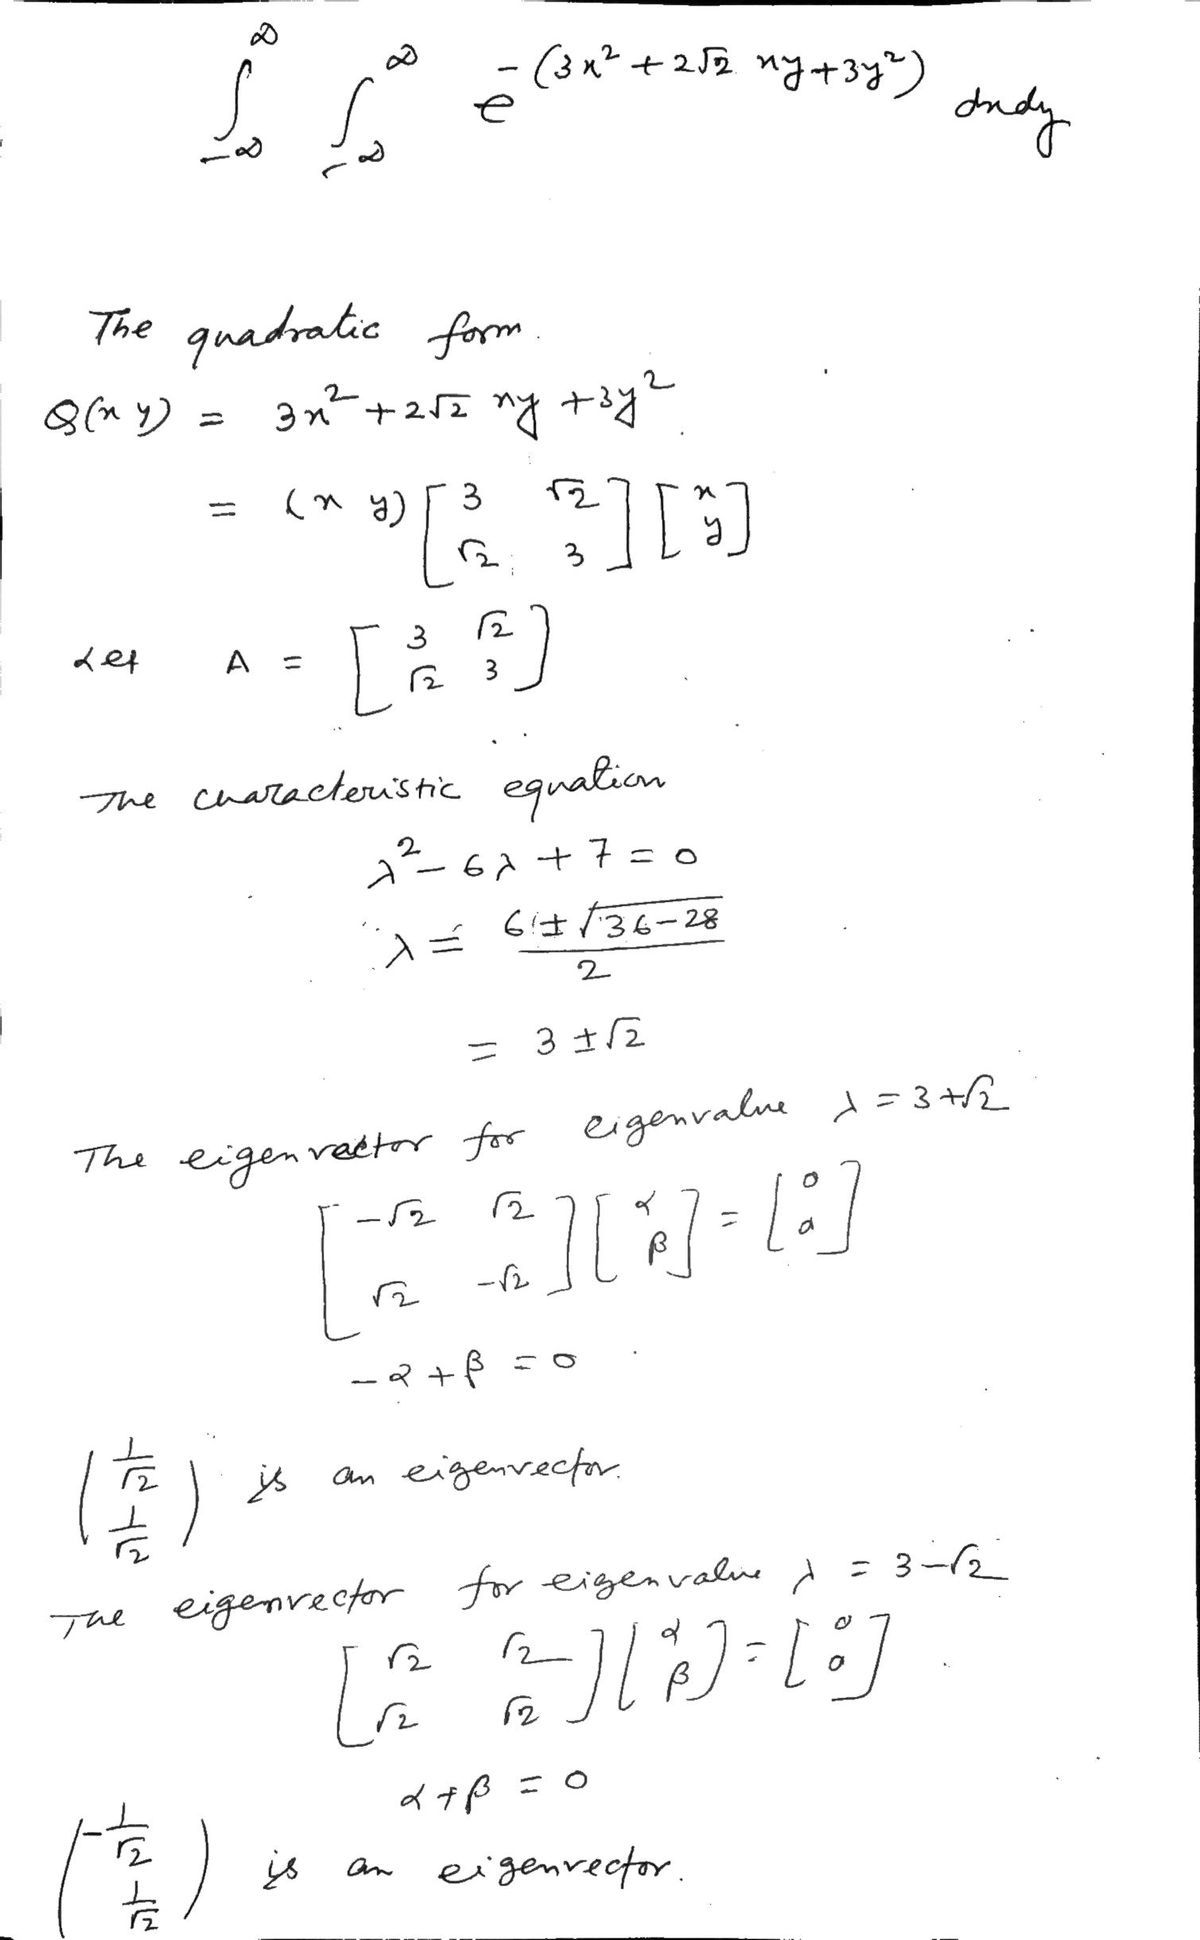 ∫_{-∞}^{∞} ∫_{-∞}^{∞} e^{-(3x² + 2√2 xy + 3y²)} dxdy
The quadratic form.
Q(x y) = 3x² + 2√2 xy + 3y².
= (x y) [3 √2; √2 3] [x; y]
Let A = [3 √2; √2 3]
The characteristic equation
λ² - 6λ + 7 = 0
λ = (6 ± √(36-28)) / 2
= 3 ± √2
The eigenvector for eigenvalue λ = 3+√2
[-√2 √2; √2 -√2] [α; β] = [0; 0]
-α + β = 0
(1/√2; 1/√2) is an eigenvector.
The eigenvector for eigenvalue λ = 3-√2
[√2 √2; √2 √2] [α; β] = [0; 0]
α + β = 0
(-1/√2; 1/√2) is an eigenvector.